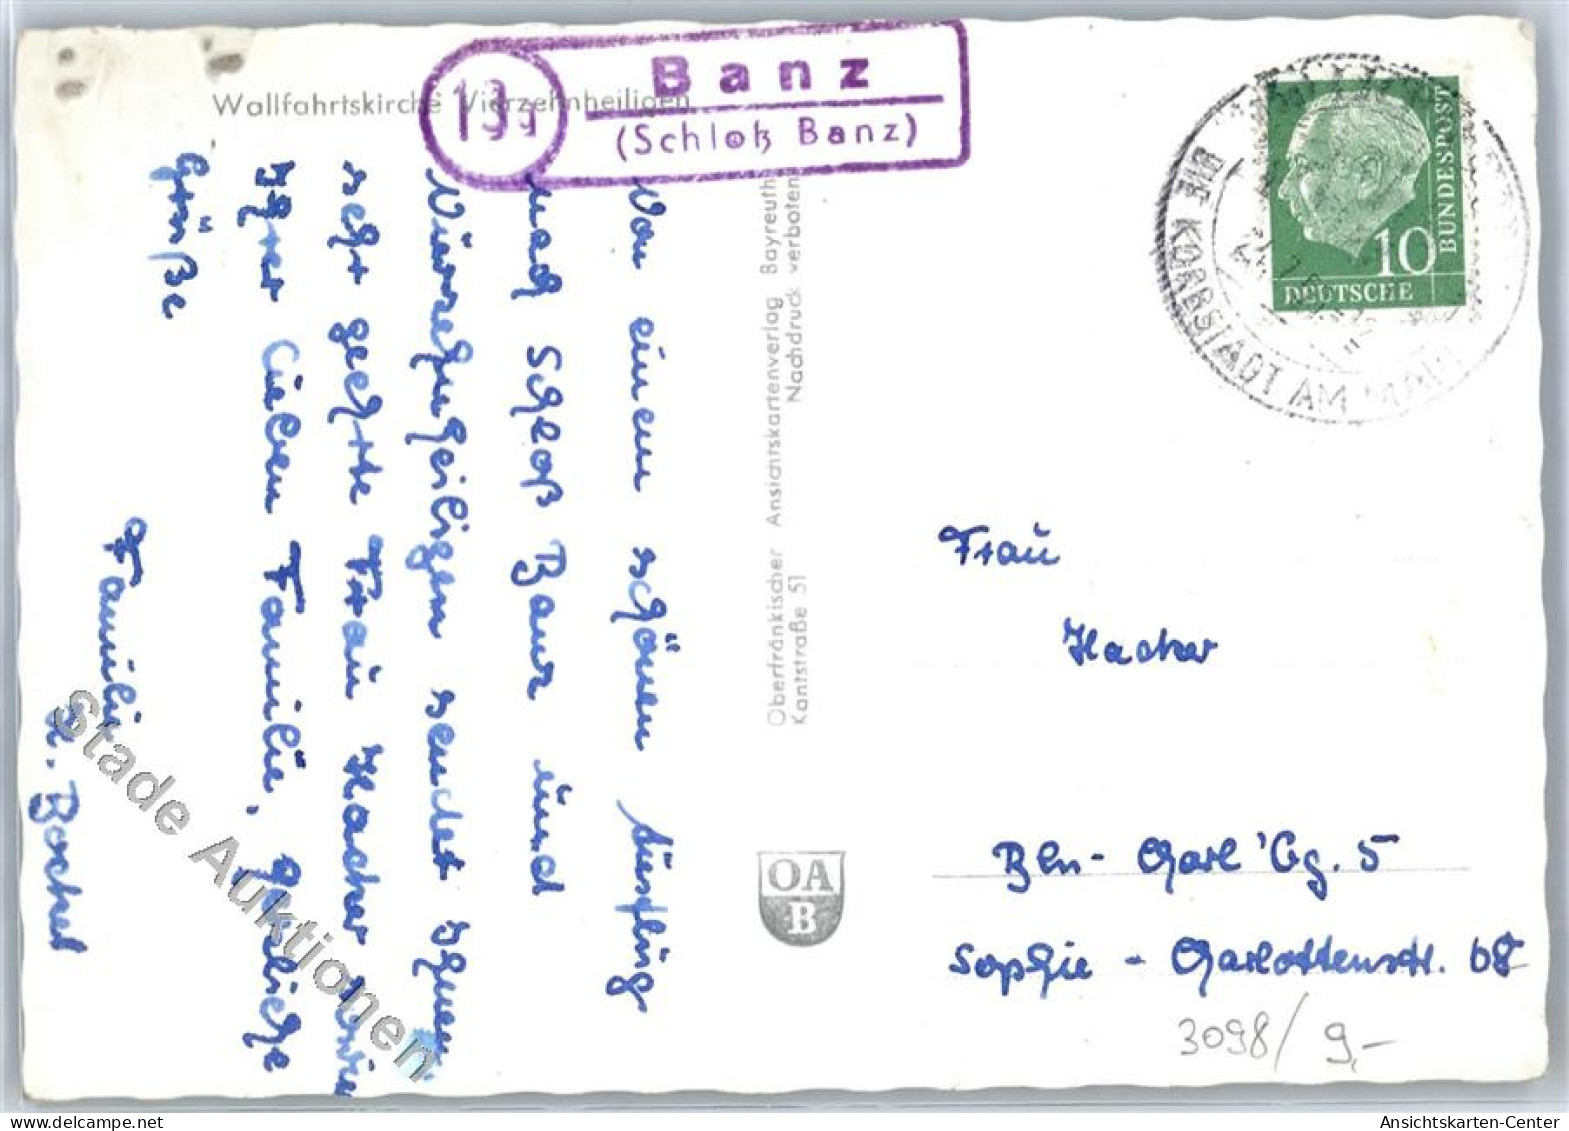 Wallfahrtskirche Vierzehnheiligen
Banz
(Schloß Banz)
Von einem schönen Ausflug
nach Schloß Banz und
Vierzehnheiligen sendet Ihnen
sehr geehrte Frau Hacker sowie
Ihrer lieben Familie, herzliche
Grüße
Familie
H. Bockel
Oberfränkischer Ansichtskartenverlag Bayreuth
Kantstraße 51 Nachdruck verboten
OA
B
DIE KORBSTADT AM MAIN
BUNDESPOST
10
DEUTSCHE
Frau
Hacker
Bln- Charl'bg. 5
Sophie-Charlottenstr. 68
3098/9,-
Stade Auktionen
Ansichtskarten-Center